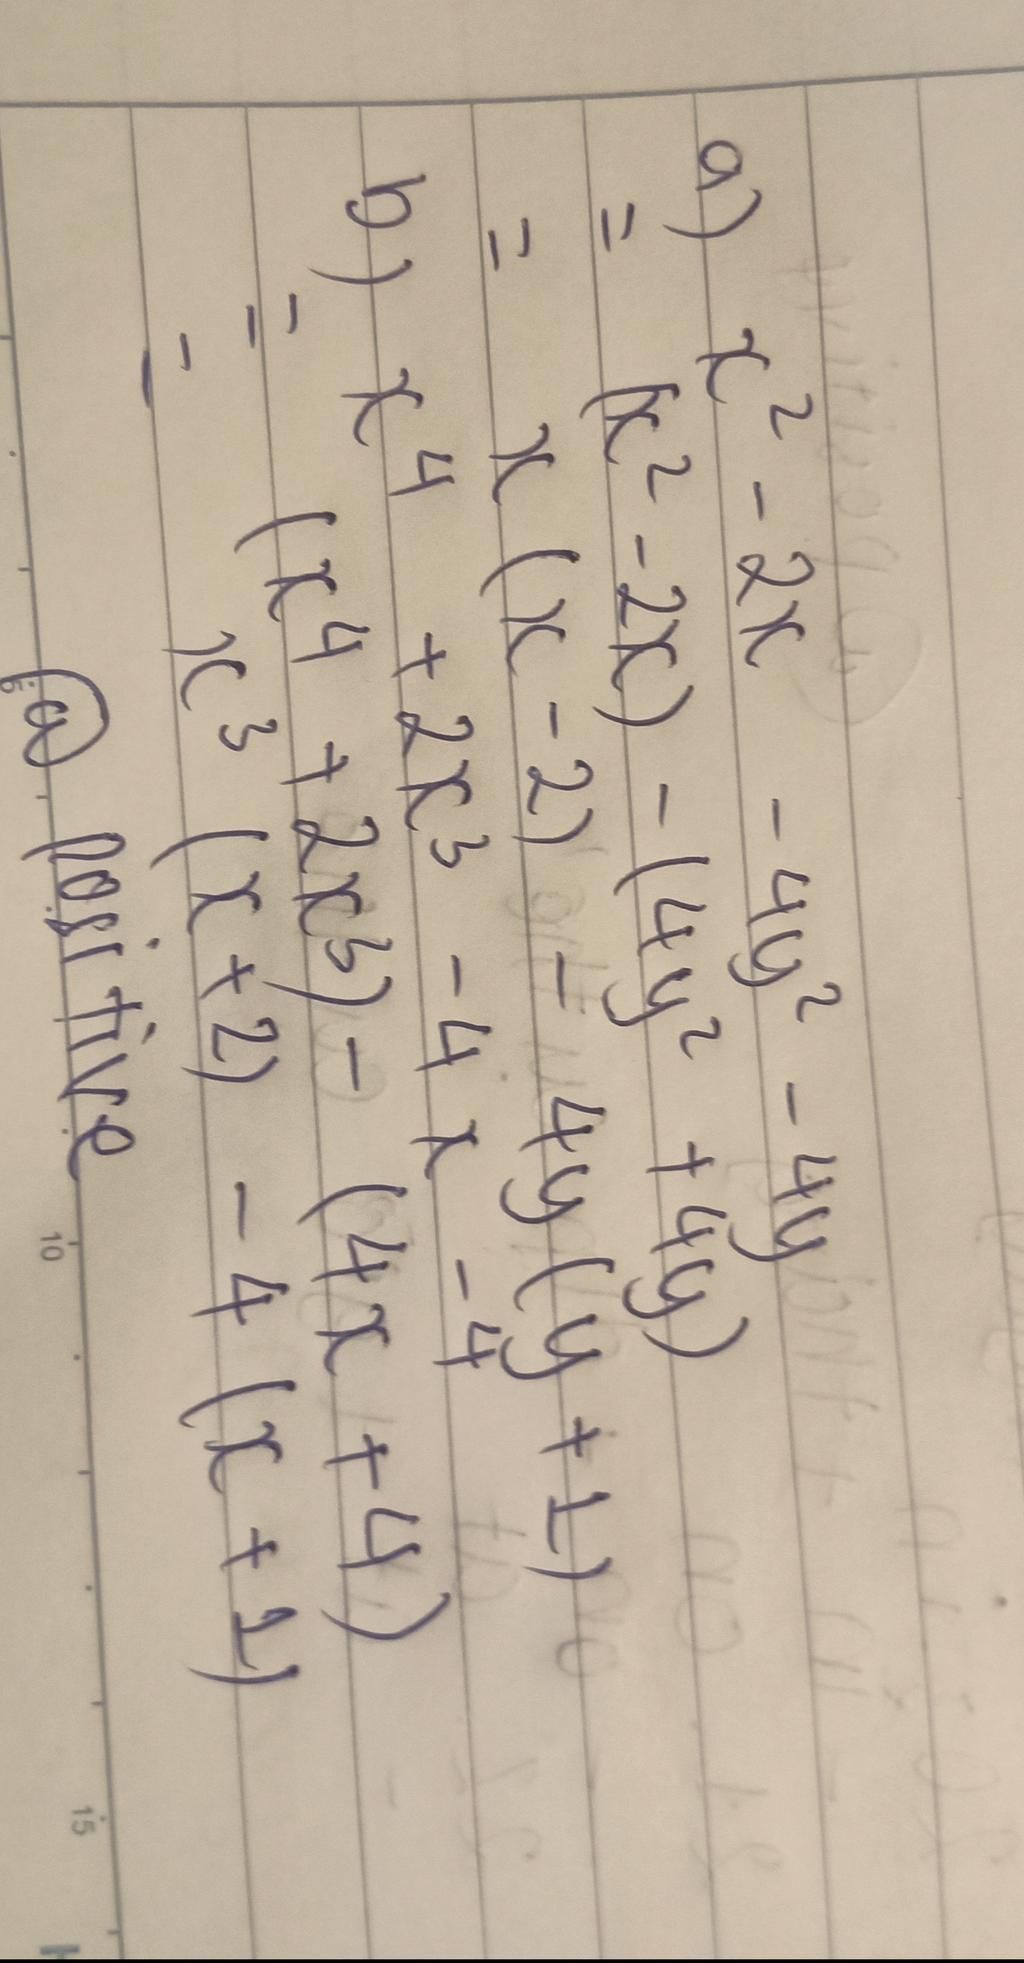 a) x² - 2x - 4y² - 4y
= (x² - 2x) - (4y² + 4y)
= x (x - 2) - 4y (y + 1)
b) x⁴ + 2x³ - 4x - 4
= (x⁴ + 2x³) - (4x + 4)
= x³ (x + 2) - 4 (x + 1)
@ positive
5 10 15